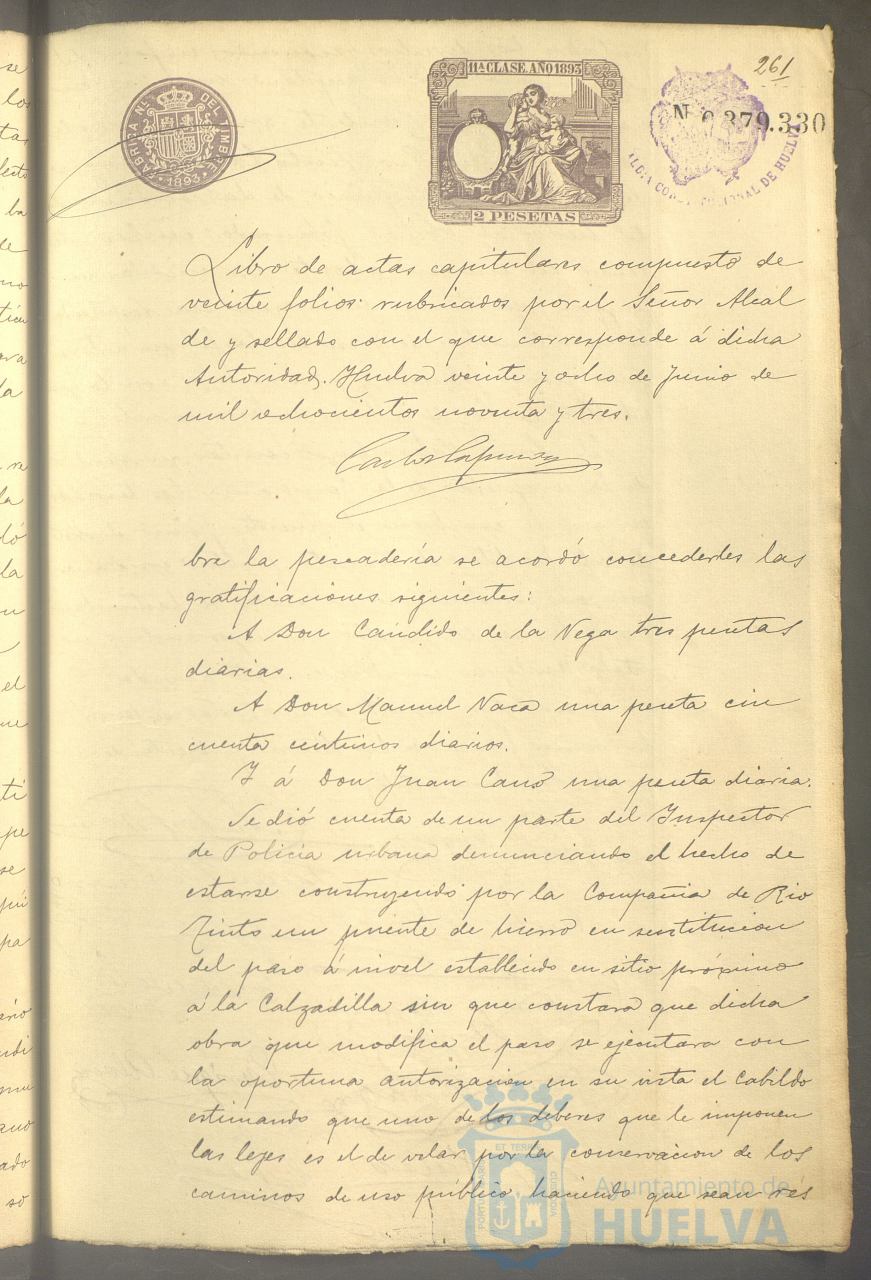 261
FABRICA NL. DEL TIMBRE
1893
11ª CLASE. AÑO 1893
2 PESETAS
379.330
Libro de actas capitulares compuesto de
veinte folios rubricados por el Señor Alcal
de y sellado con el que corresponde á dicha
Autoridad. Huelva veinte y ocho de Junio de
mil ochocientos noventa y tres.
Carlos
bre la pescadería se acordó concederles las
gratificaciones siguientes:
A Don Cándido de la Vega tres pesetas
diarias.
A Don Manuel Vaca una peseta cin
cuenta céntimos diarios.
Y á Don Juan Cano una peseta diaria.
Se dió cuenta de un parte del Inspector
de Policía urbana denunciando el hecho de
estarse construyendo por la Compañia de Rio
Tinto un puente de hierro en sustitucion
del paso á nivel establecido en sitio próximo
á la Calzadilla sin que constara que dicha
obra que modifica el paso se ejecutara con
la oportuna autorizacion en su vista el Cabildo
estimando que uno de los deberes que le imponen
las leyes es el de velar por la conservacion de los
caminos de uso público haciendo que sean res
Ayuntamiento de
HUELVA